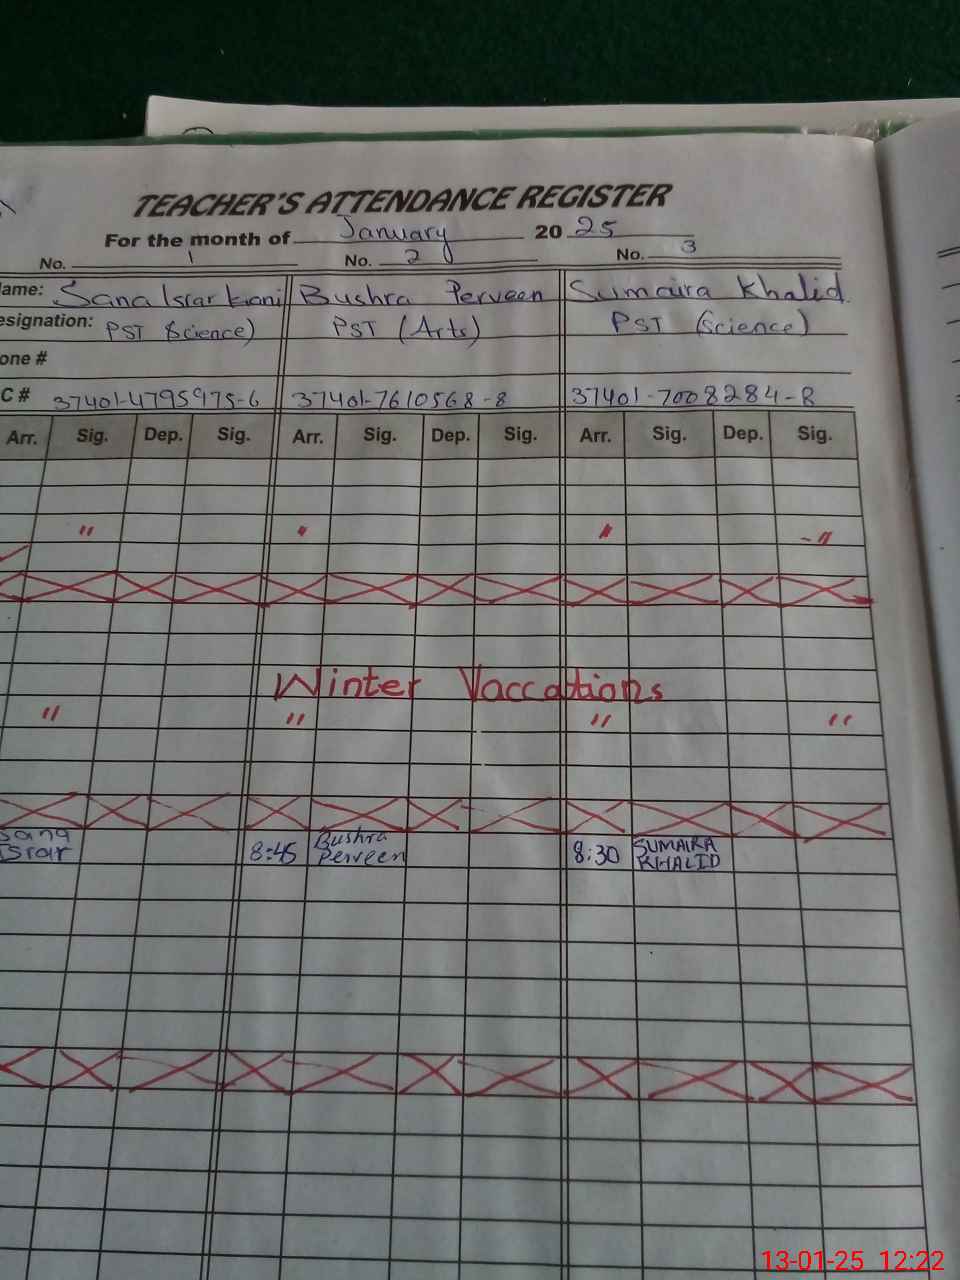 TEACHER'S ATTENDANCE REGISTER
For the month of January 20 25
No. 1 No. 2 No. 3
ame: Sana Israr kiani Bushra Perveen Sumaira Khalid
esignation: PST (Science) PST (Arts) PST (Science)
one #
C # 37401-4795975-6 37401-7610568-8 37401-7008284-8
Arr. Sig. Dep. Sig. Arr. Sig. Dep. Sig. Arr. Sig. Dep. Sig.
" " " - "
Winter Vaccations
" " " "
Sana Israr 8:45 Bushra Perveen 8:30 SUMAIRA KHALID
13-01-25 12:22